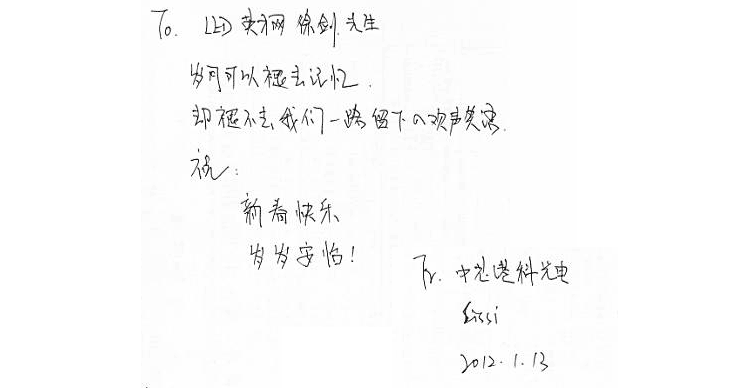 To. LED英才网 徐剑先生
岁月可以褪去记忆.
却褪不去我们一路留下的欢声笑语.
祝:
新春快乐
岁岁安怡!
Fr. 中芯港科光电
Sissi
2012.1.13